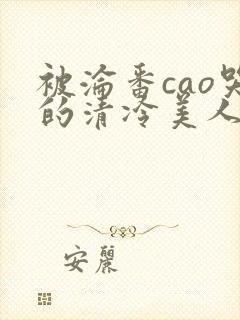 被淪番cao哭
的清冷美人
安麗